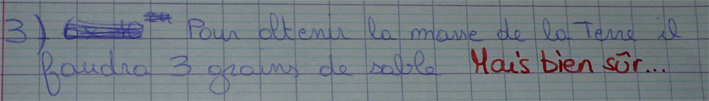 3) Pour obtenir la masse de la Terre il
faudra 3 grains de sable Mais bien sûr...